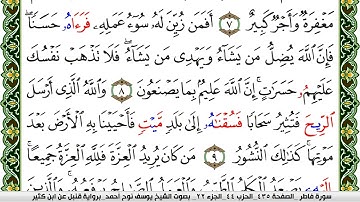 مَّغْفِرَةٌ وَأَجْرٌ كَبِيرٌ ٧ أَفَمَن زُيِّنَ لَهُۥ سُوٓءُ عَمَلِهِۦ فَرَءَاهُۥ حَسَنًا
فَإِنَّ ٱللَّهَ يُضِلُّ مَن يَشَآءُ وَيَهْدِى مَن يَشَآءُ فَلَا تَذْهَبْ نَفْسُكَ
عَلَيْهِمُۥ حَسَرَٰتٍ إِنَّ ٱللَّهَ عَلِيمٌۢ بِمَا يَصْنَعُونَ ٨ وَٱللَّهُ ٱلَّذِىٓ أَرْسَلَ
ٱلرِّيحَ فَتُثِيرُ سَحَابًا فَسُقْنَٰهُۥ إِلَىٰ بَلَدٍ مَّيْتٍ فَأَحْيَيْنَا بِهِ ٱلْأَرْضَ بَعْدَ
مَوْتِهَا كَذَٰلِكَ ٱلنُّشُورُ ٩ مَن كَانَ يُرِيدُ ٱلْعِزَّةَ فَلِلَّهِ ٱلْعِزَّةُ جَمِيعًا
سورة فاطر _ الصفحة ٤٣٥ _ الحزب ٤٤ _ الجزء ٢٢ _ بصوت الشيخ يوسف نوح أحمد _ برواية قنبل عن ابن كثير